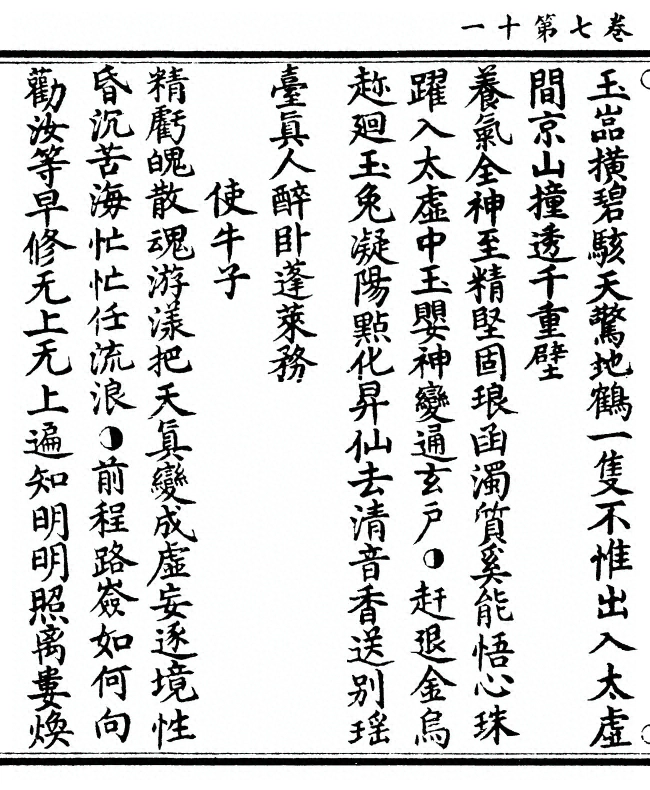 卷七第十一
玉嵓橫碧駭天驚地鶴一隻不惟出入太虛
間京山撞透千重壁
養氣全神至精堅固琅函濁質奚能悟心珠
躍入太虛中玉嬰神變通玄戶◑赶退金烏
趂廻玉兔凝陽點化昇仙去清音香送別瑶
臺眞人醉卧蓬萊務
使牛子
精虧魄散魂游漾把天眞變成虛妄逐境性
昏沉苦海忙忙任流浪◑前程路嶮如何向
勸汝等早修无上无上遍知明明照离婁煥